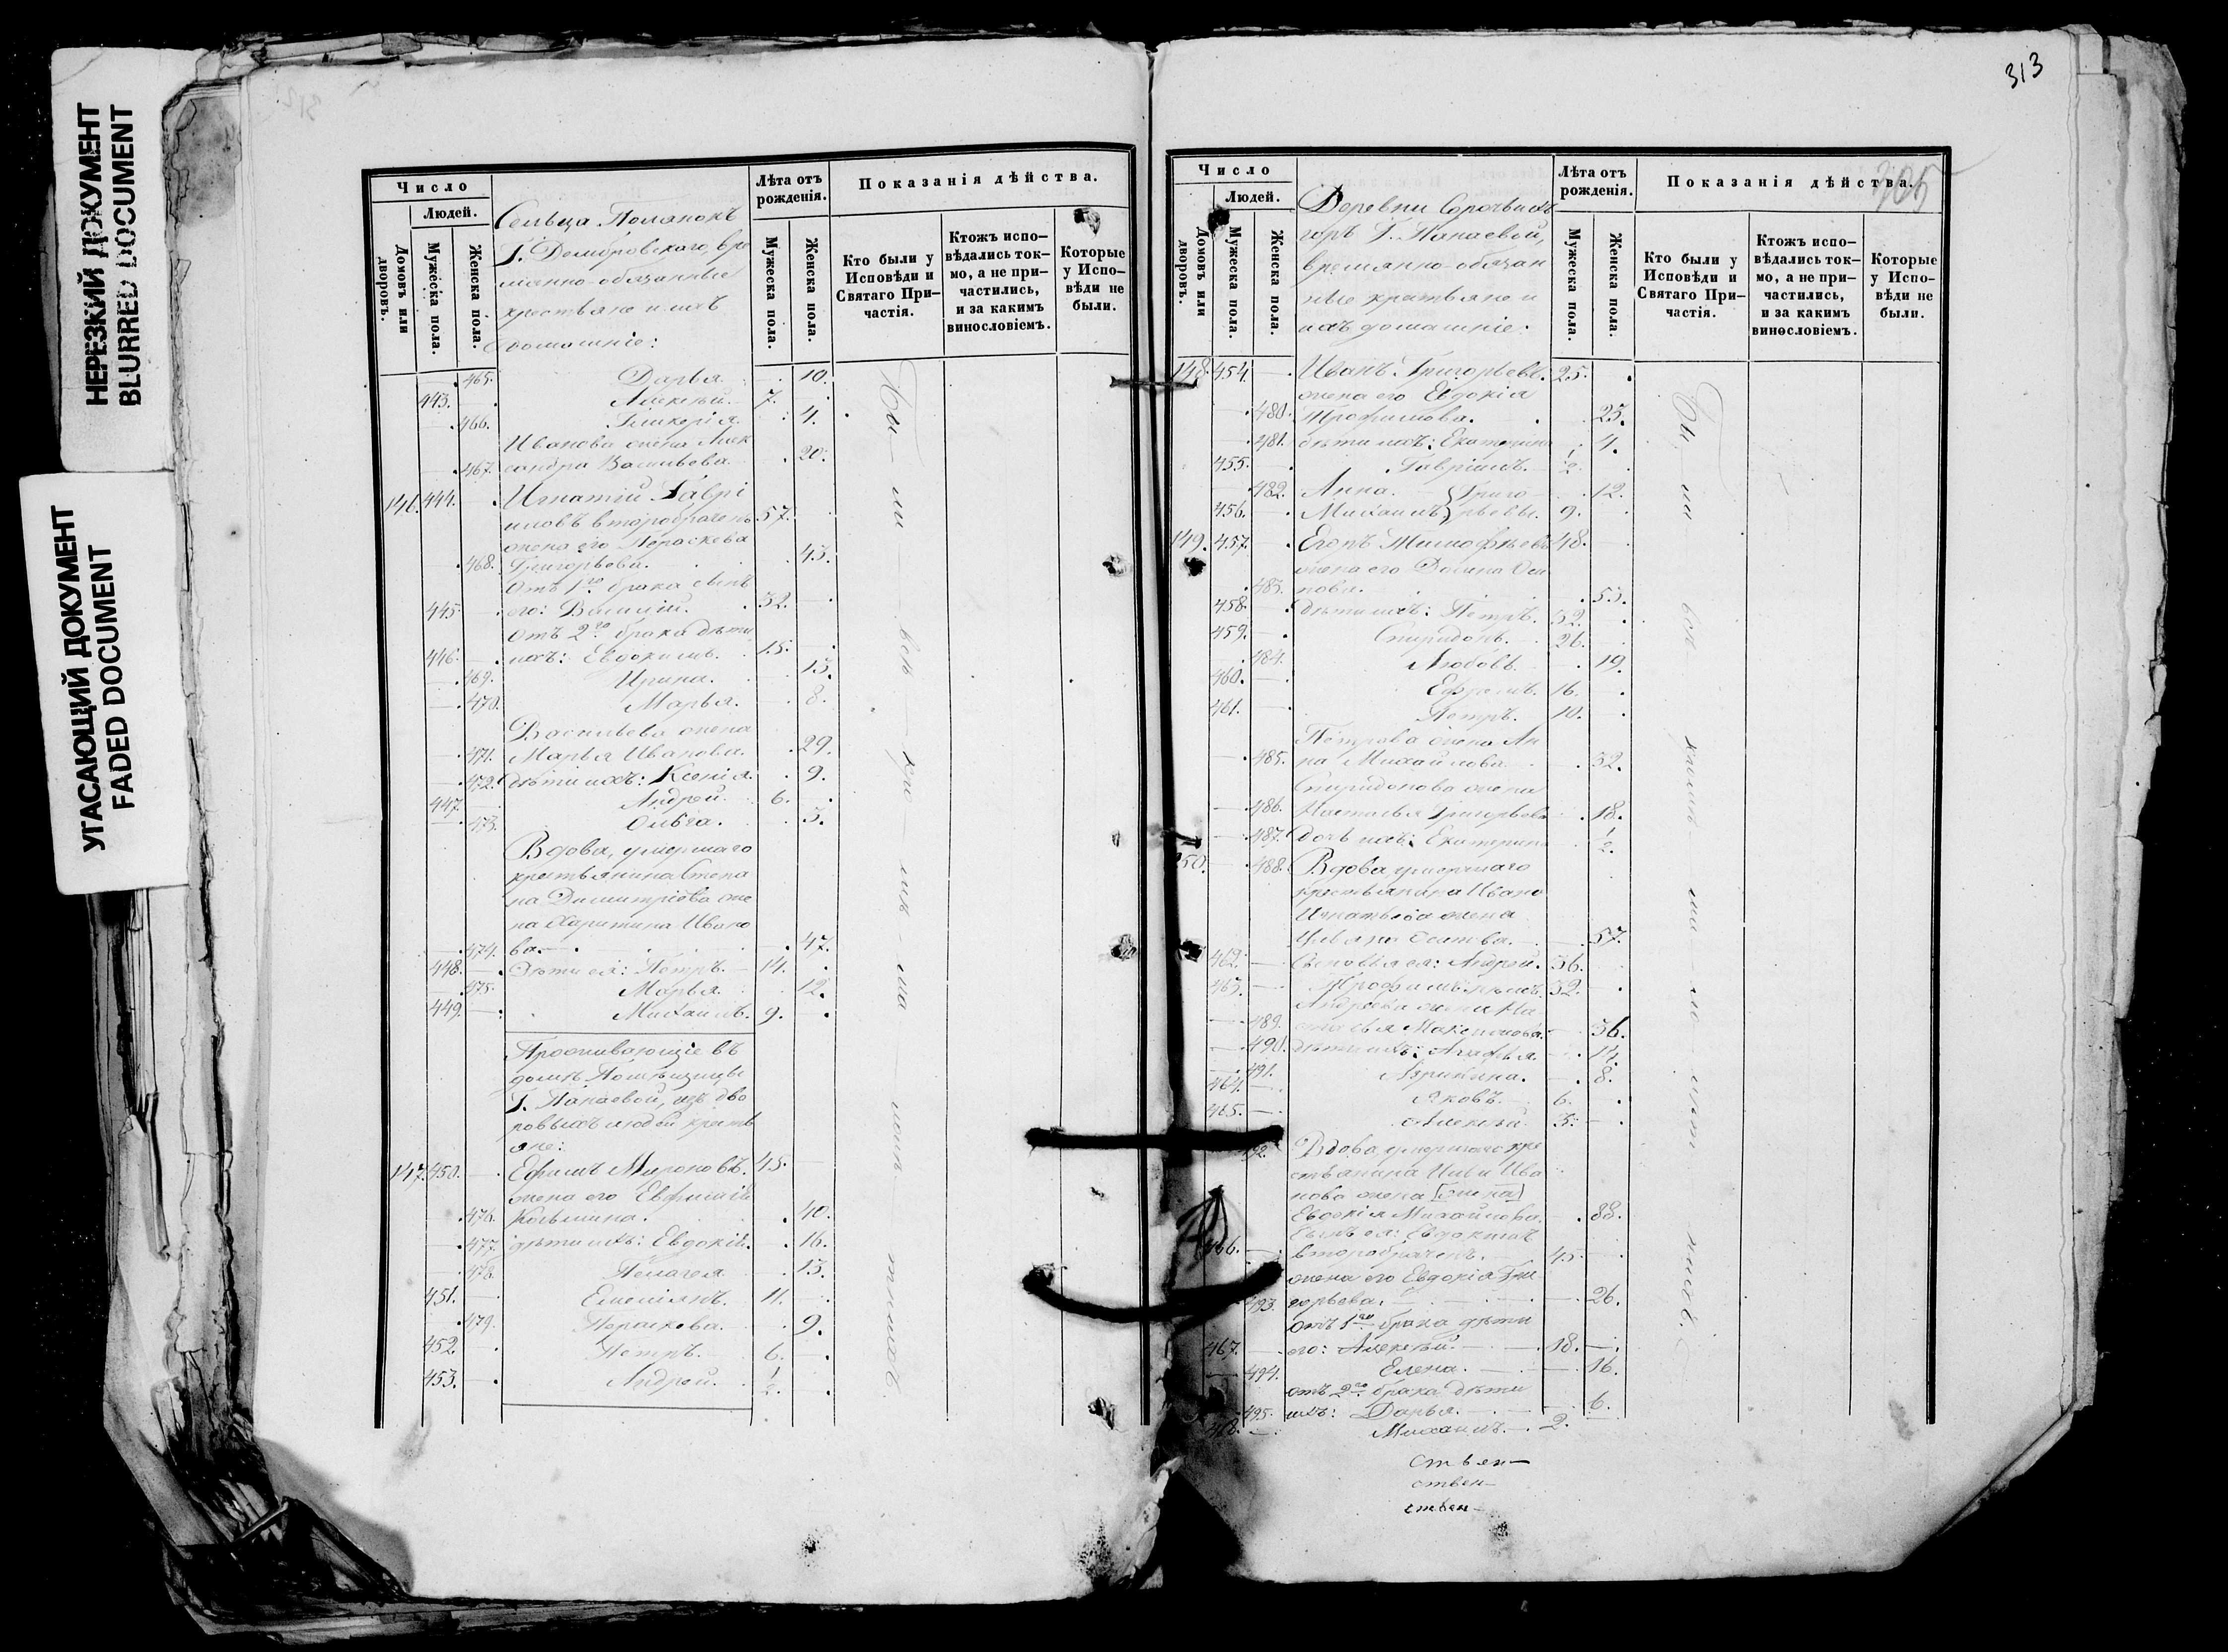 НЕРЕЗКИЙ ДОКУМЕНТ
BLURRED DOCUMENT
УГАСАЮЩИЙ ДОКУМЕНТ
FADED DOCUMENT
Число
Людей.
Домовъ или дворовъ.
Мужеска пола.
Женска пола.
Сельца Полянокъ
Г. Домбровскаго, вре
менно-обязанные
крестьяне и ихъ
домашніе:
Лѣта отъ рожденія.
Мужеска пола.
Женска пола.
Показанія дѣйства.
Кто были у Исповѣди и Святаго При–частія.
Ктожъ испо–вѣдались ток–мо, а не при–частились, и за какимъ винословіемъ.
Которые у Испо–вѣди не были.
465. Дарья 10.
443. Алексѣй. 7.
466. Гликерія. 4.
Иванова жена Алек
467. сандра Васильева. 20.
146. 444. Игнатій Гаври
иловъ второбраченъ 57.
жена его Параскева
468. Григорьева. 43.
Отъ 1го брака сынъ
445. его: Василій. 32.
Отъ 2го брака дѣти
446. ихъ: Евдокимъ. 15.
469. Ирина. 13.
470. Марья. 8.
Васильева жена
471. Марья Иванова. 29.
472. дѣти ихъ: Ксенія. 9.
447. Андрей. 6.
473. Ольга. 3.
Вдова, умершаго
крестьянина Степа
на Димитріева же
на Харитина Ивано
474. ва. 47.
448. Дѣти ея: Петръ. 14.
475. Марья. 12.
449. Михаилъ. 9.
Проживающіе въ
домѣ Помѣщицы
Г. Папаевой, изъ дво
ровыхъ людей крестья
яне:
147. 450. Ефимъ Мироновъ. 45.
жена его Евфимія
476. Козьмина. 40.
477. дѣти ихъ: Евдокія. 16.
478. Пелагея 13.
451. Емеліянъ. 11.
479. Параскева. 9.
452. Петръ. 6.
453. Андрей. 1/2.
313
305
Число
Людей.
Домовъ или дворовъ.
Мужеска пола.
Женска пола.
Деревни
горъ Г. Папаевой,
временно-обязан
ные крестьяне и
ихъ домашніе:
Лѣта отъ рожденія.
Мужеска пола.
Женска пола.
Показанія дѣйства.
Кто были у Исповѣди и Святаго При–частія.
Ктожъ испо–вѣдались ток–мо, а не при–частились, и за какимъ винословіемъ.
Которые у Испо–вѣди не были.
148. 454. Иванъ Григорьевъ. 25.
жена его Евдокія
480. Трофимова. 25.
481. дѣти ихъ: Екатерина 4.
455. Гавріилъ. 1/2.
482. Анна. } Григо 12.
456. Михаилъ } рьевы. 9.
149. 457. Егоръ Тимофѣевъ 48.
жена его Домна Оси
483. пова. 53.
458. дѣти ихъ: Петръ. 32.
459. Спиридонъ. 26.
484. Любовь. 19.
460. Ефремъ. 16.
461. Петръ. 10.
Петрова жена Ан
485. на Михайлова. 32.
Спиридонова жена
486. Наталья Григорьева 18.
487. дочь ихъ: Екатерина 1/2.
150. 488. Вдова умершаго
крестьянина Ивана
Игнатьева жена
Осипова. 57.
462. Сыновья ея: Андрей. 36.
463. Трофимъ 32.
Андреева жена На
489. 36.
490. дѣти ихъ: Агафья. 14.
491. Агрипина. 8.
464. Яковъ. 6.
465. Алексѣй. 3.
492. Вдова умершаго кре
стьянина Ильи Ива
нова жена
Евдокія Михайлова. 88.
Сынъ ея: Евдокимъ
466. второбраченъ. 45.
жена его Евдокія Гри
493. горьева. 26.
Отъ 1го брака дѣти
467. его: Алексѣй. 18.
494. Елена. 16.
отъ 2го брака дѣти
495. ихъ: Дарья. 6.
468. Михаилъ. 2.
ствен–
ствен–